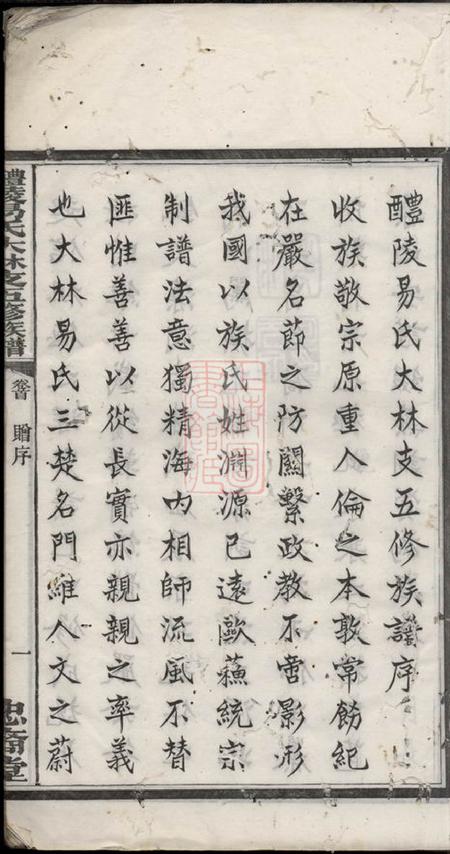 醴陵易氏大林支五修族譜序
收族敬宗原重人倫之本敦常飭紀
在嚴名節之防關繫政教不啻影形
我國以族氏姓淵源已遠歐蘇統宗
制譜法意獨精海內相師流風不替
匪惟善善以從長實亦親親之率義
也大林易氏三楚名門維人文之蔚
醴陵易氏大林支五修族譜
卷首
贈序
一
忠裔堂